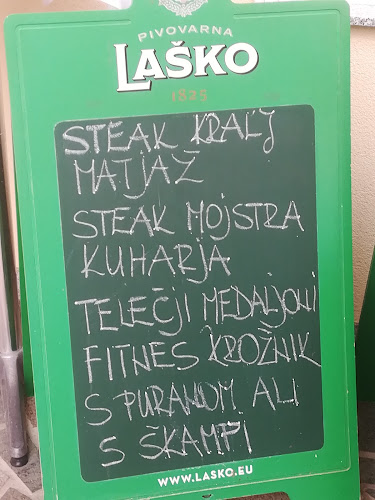 PIVOVARNA
LAŠKO
1825
STEAK KRALJ
MATJAŽ
STEAK MOJSTRA
KUHARJA
TELEČJI MEDALJONI
FITNES KROŽNIK
S PURANOM ALI
S ŠKAMPI
WWW.LASKO.EU